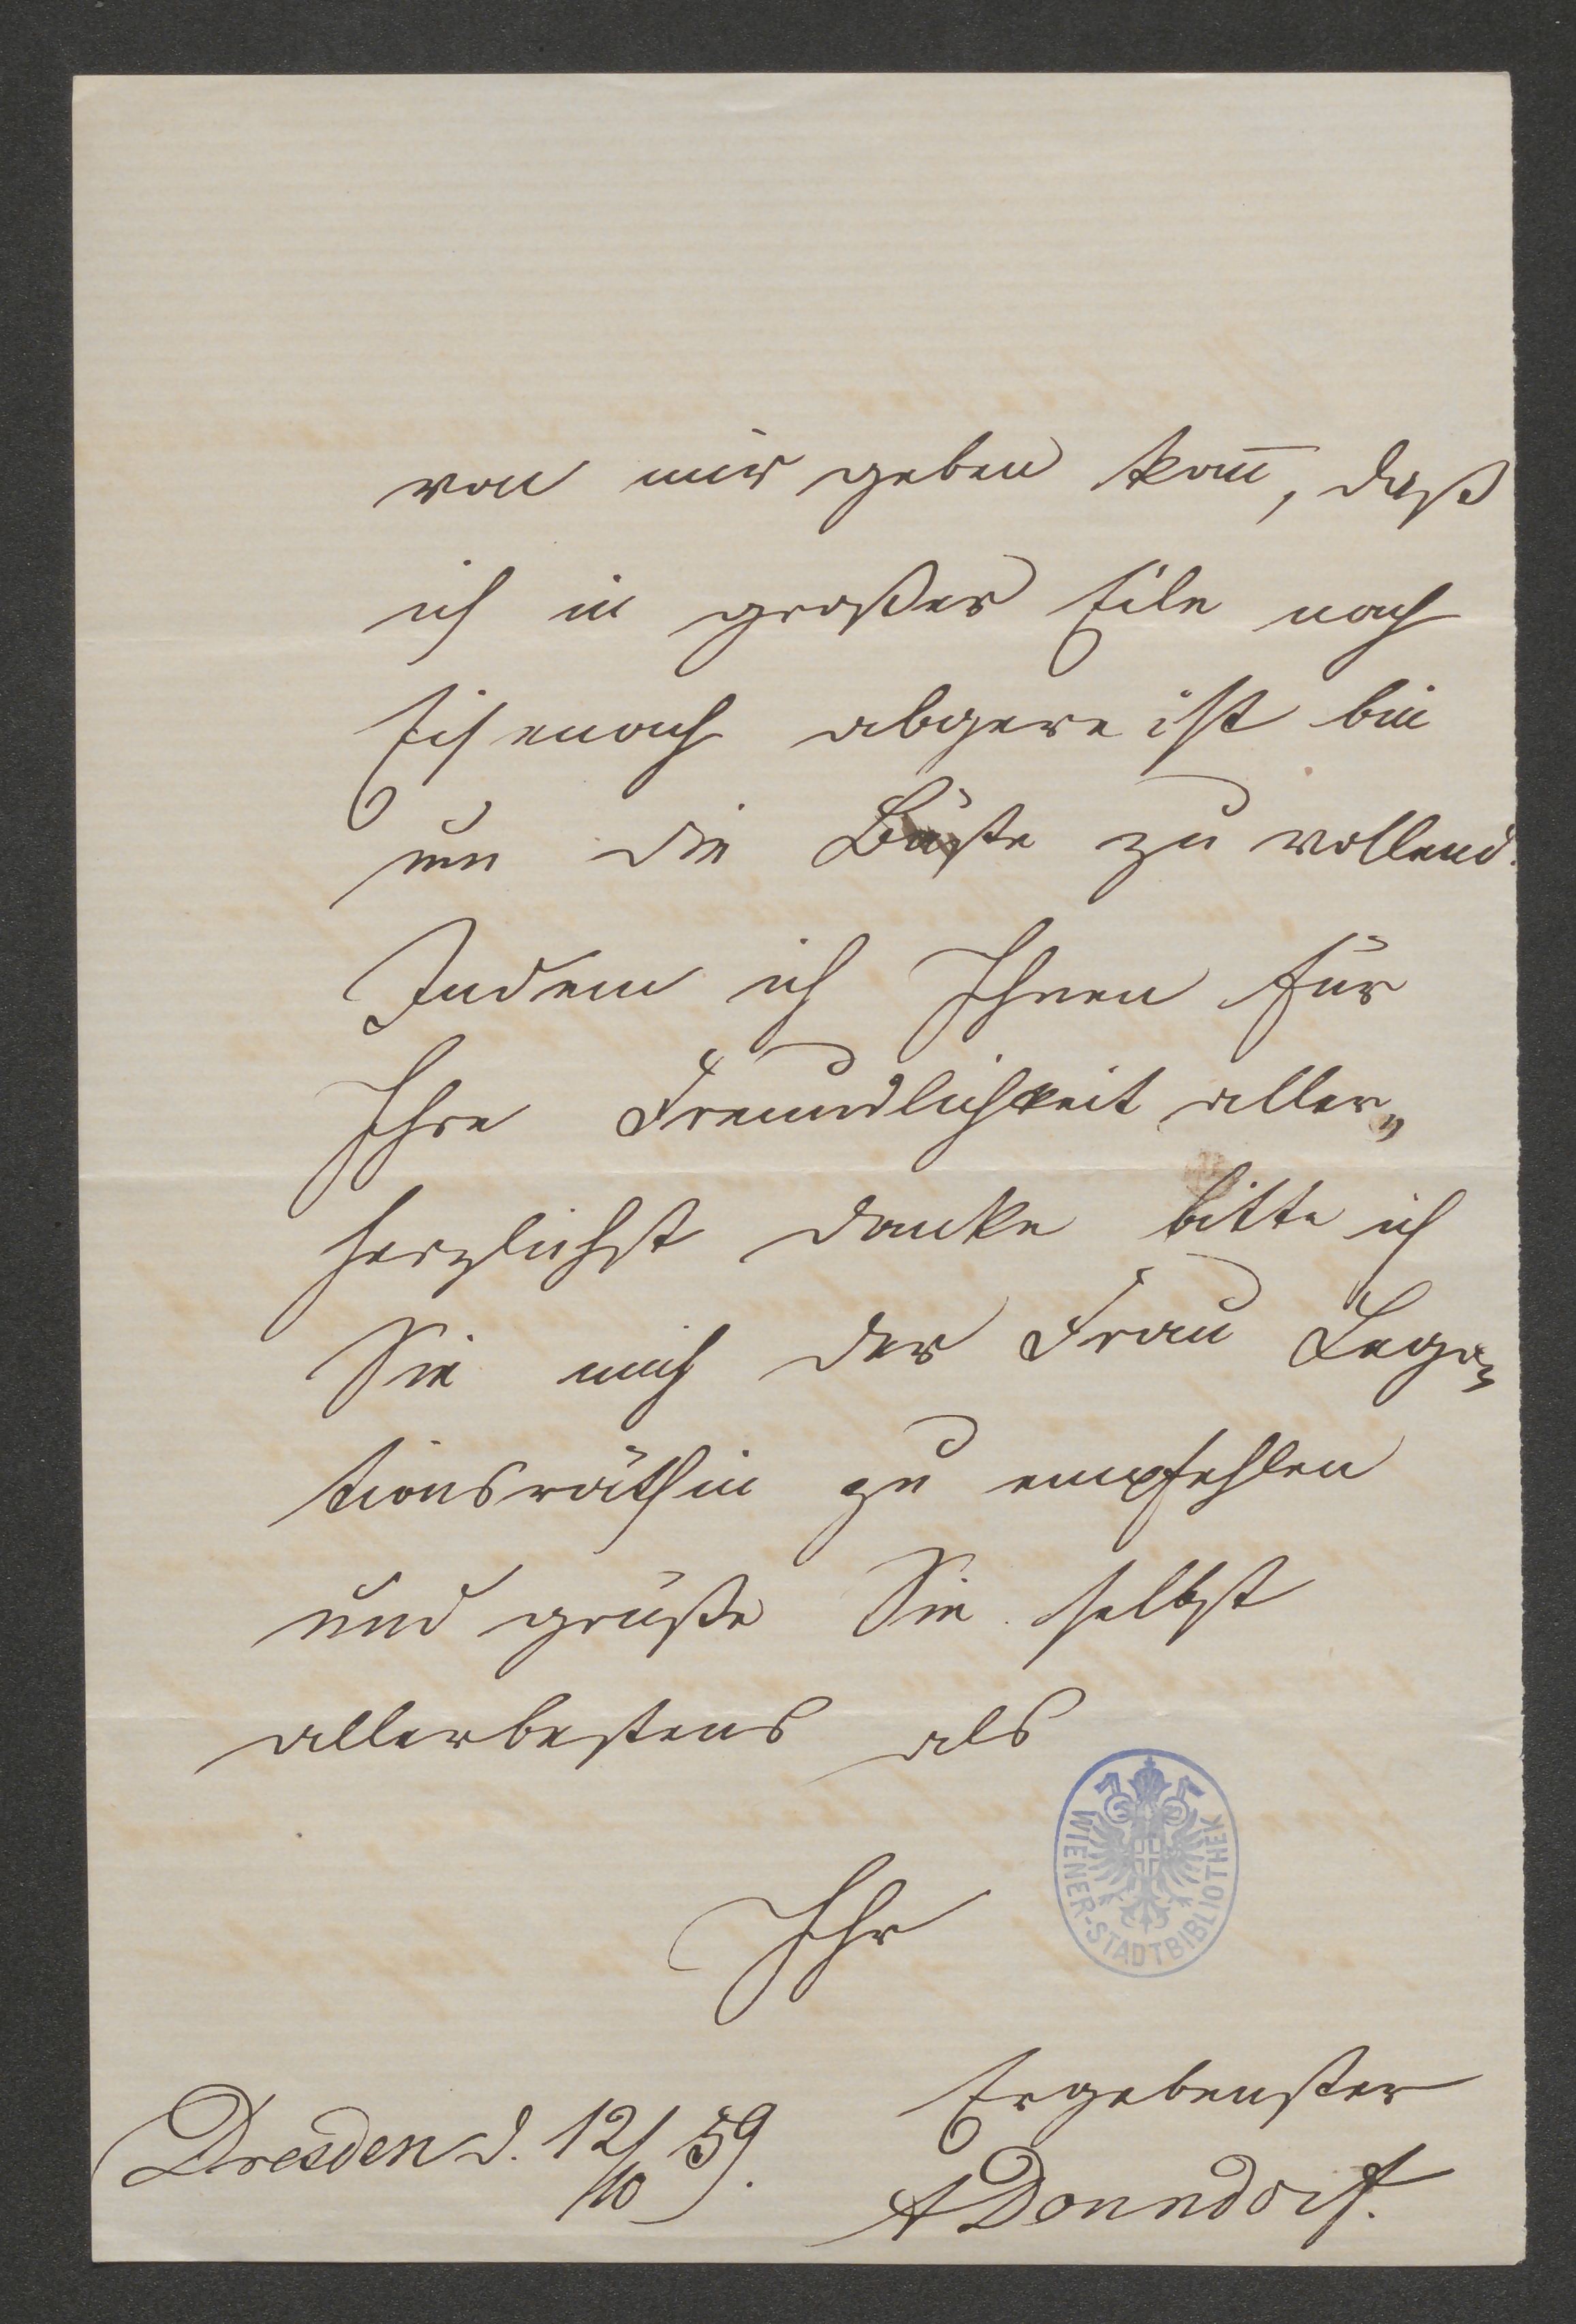 von mir geben kan̅, daß
ich in großer Eile nach
Eisenach abgereist bin
um die Büste zu vollend.
Indem ich Ihnen für
Ihre Freundlichkeit aller„
herzlichst danke bitte ich
Sie mich der Frau Lega„
tionsräthin zu empfehlen
und grüße Sie selbst
allerbestens als
Ihr
WIENER-STADTBIBLIOTHEK
Ergebenster
Dresden d. 12/10 59.
ADonndorf.